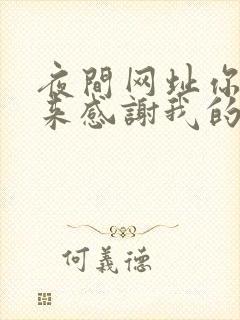 夜間网址你
来感謝我的
何義德